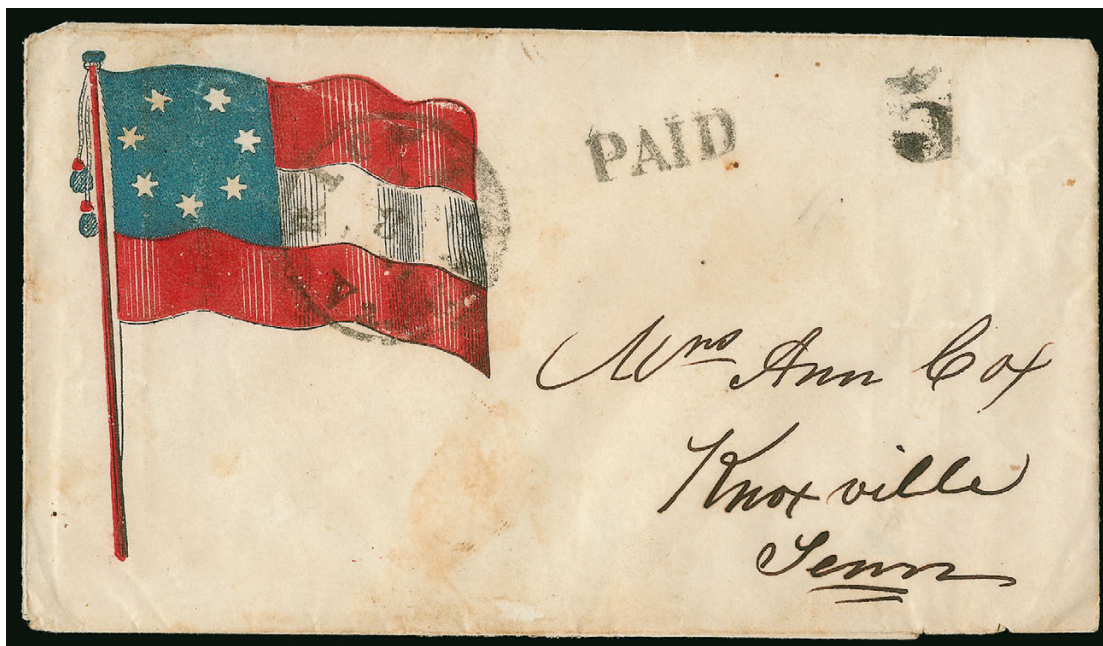 PAID
5
Mrs Ann Cox
Knoxville
Tenn